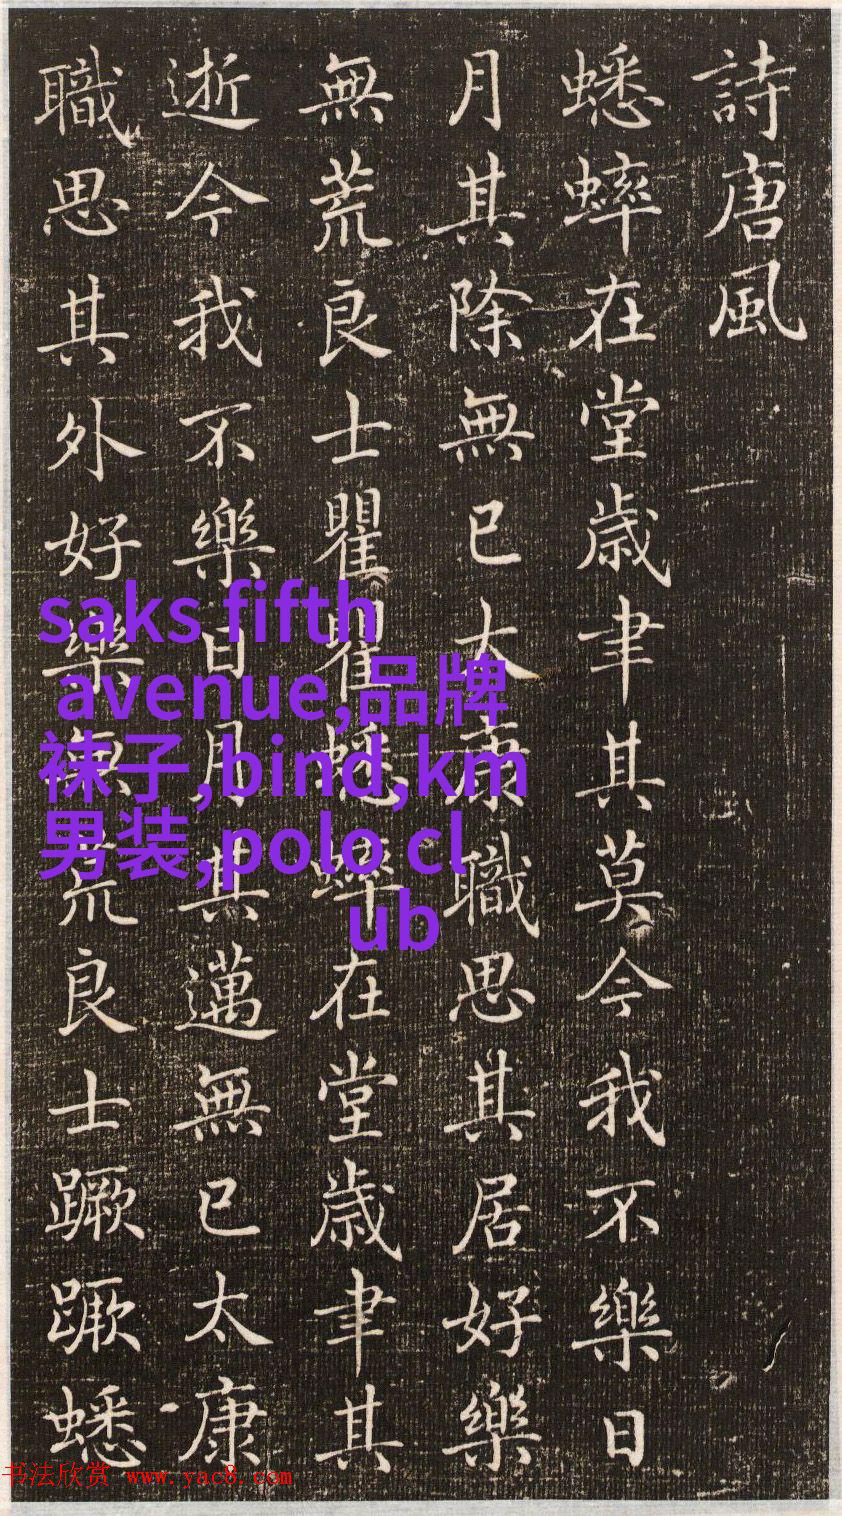 詩唐風
蟋蟀在堂歳聿其莫今我不樂日
月其除無已太康職思其居好樂
無荒良士瞿瞿蟋蟀在堂歳聿其
逝今我不樂日月其邁無已太康
職思其外好樂無荒良士蹶蹶蟋
saks fifth
avenue,品牌
袜子,bind,km
男装,polo cl
ub
书法欣赏 www.yac8.com